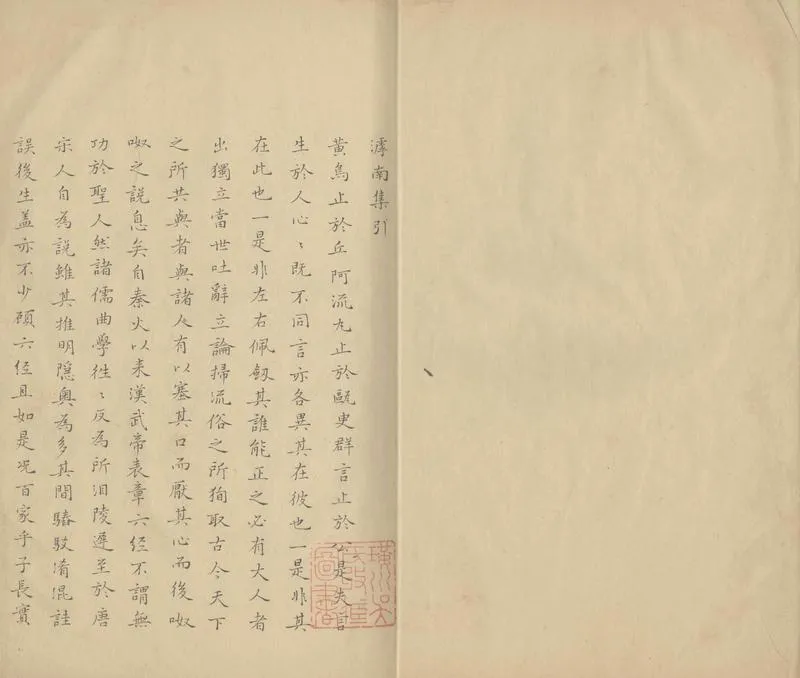 滹南集引
黃鳥止於丘阿流丸止於甌臾群言止於公是夫言
生於人心〻既不同言亦各異其在彼也一是非其
在此也一是非左右佩劔其誰能正之必有大人者
出獨立當世吐辭立論掃流俗之所狥取古今天下
之所共與者與諸人有以塞其口而厭其心而後呶
呶之說息矣自秦火以来漢武帝表章六经不謂無
功於聖人然諸儒曲學徃〻反為所汨陵遲至於唐
宋人自為說雖其推明隱奧為多其間䮞駁淆混詿
誤後生盖亦不少顧六经且如是况百家乎子長實
璜川吳
氏收藏
圖書